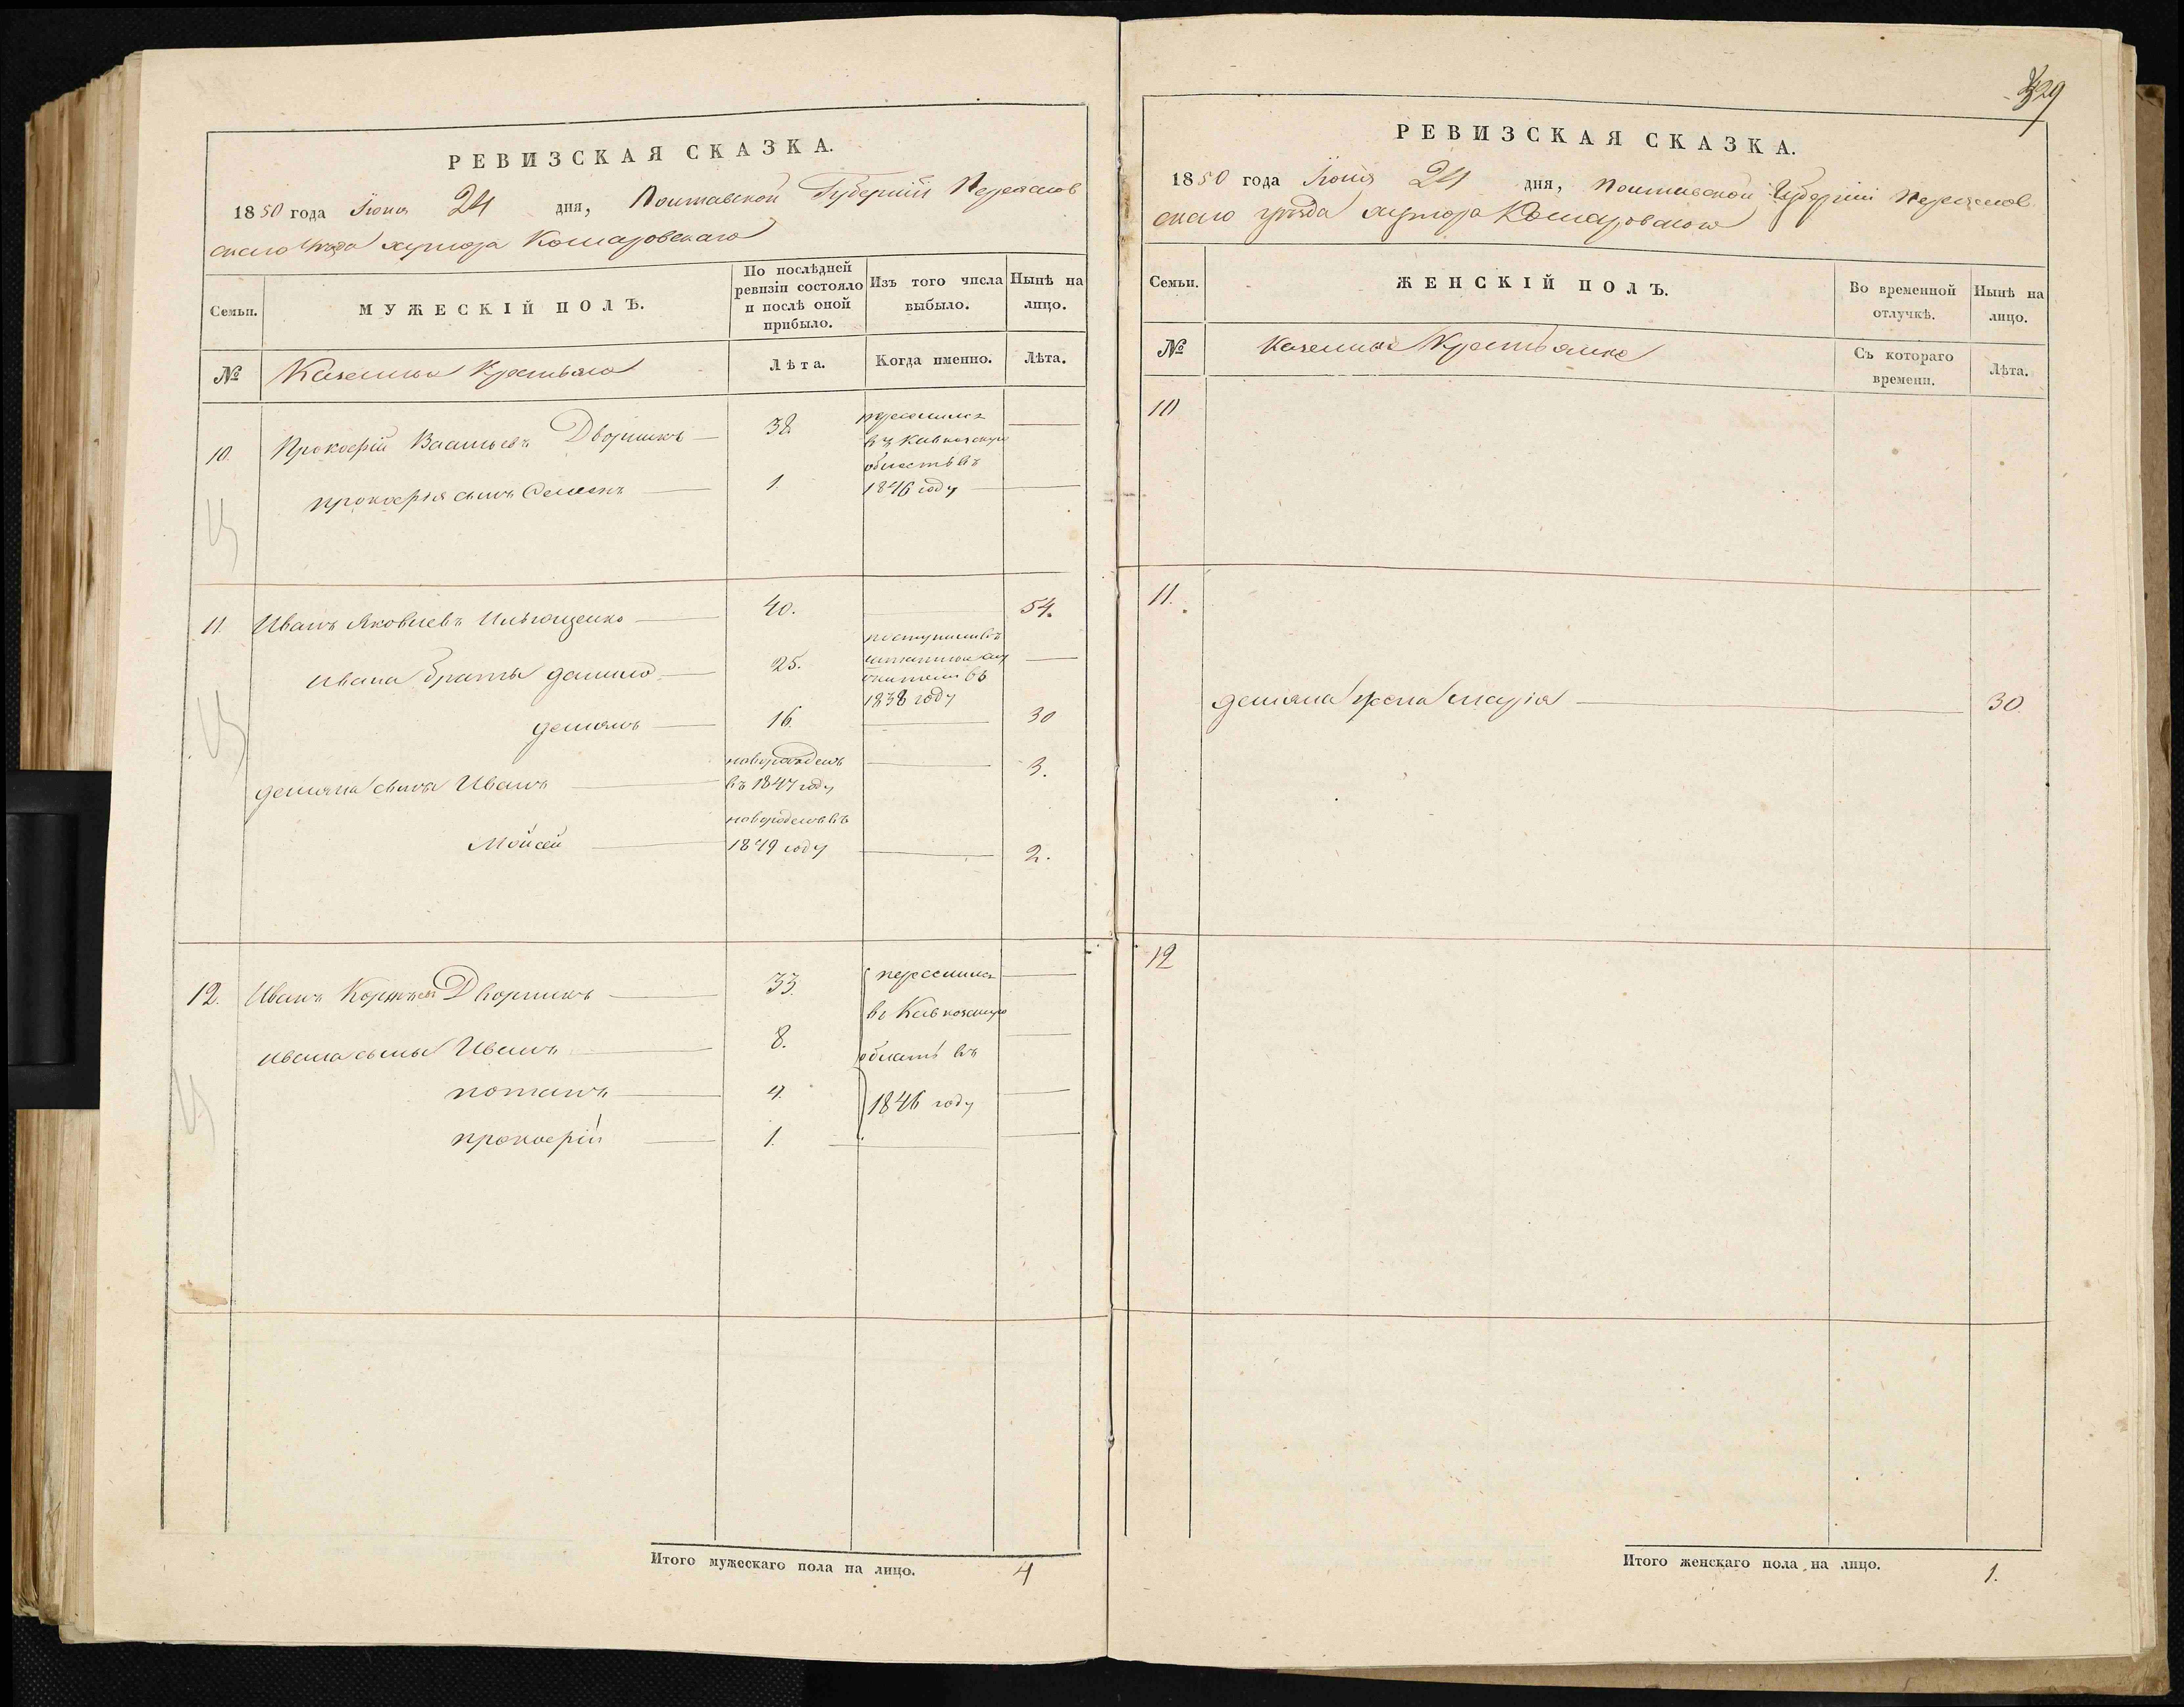 РЕВИЗСКАЯ СКАЗКА.
1850 года Июня 24 дня, Полтавской Губерніи Переяслов
скаго уезда хутора Комаровскаго
Семьи.
МУЖЕСКІЙ ПОЛЪ.
По послѣдней ревизіи состояло и послѣ оной прибыло.
Изъ того числа выбыло.
Нынѣ на лицо.
№
Казенные Крестьяне
Лѣта.
Когда именно.
Лѣта.
10. Прокофій Васильевъ Дворникъ 38. переселилъ
въ Кавказскую
область въ
прокофія сынъ Семенъ 1. 1846 году
11. Иванъ Яковлевъ Ильющенко 40. 54.
ивана братья данило 25. поступилъ въ
1838 году
демянъ 16. 30
демяна сынъя Иванъ новорожденъ
въ 1847 году 3.
Мойсей новорожденъ въ
1849 году 2.
12. Иванъ Корнѣевъ Дворникъ 33. переселилъ
въ Кавказскую
ивана сыны Иванъ 8. область въ
потапъ 4. 1846 году
прокофій 1.
Итого мужескаго пола на лицо. 4
429
РЕВИЗСКАЯ СКАЗКА.
1850 года Июня 24 дня, Полтавской Губерніи Переяслов
скаго уѣзда хутора Комаровского
Семьи.
ЖЕНСКІЙ ПОЛЪ.
Во временной отлучкѣ.
Нынѣ на лицо.
№
Казенные Крестьянке
Съ котораго времени.
Лѣта.
10
11.
демяна жена марія 30
12
Итого женскаго пола на лицо. 1.